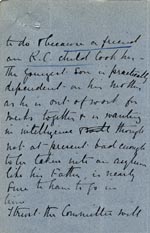 to do & because a friend
an R.C. child took her –
The youngest son is practically
dependent on his mother
as he is out of work for
weeks together & is wanting
in intelligence though
not at present bad enough
to be taken into an asylum
like his father, is nearly
sure to have to go in
time
I trust the Committee will